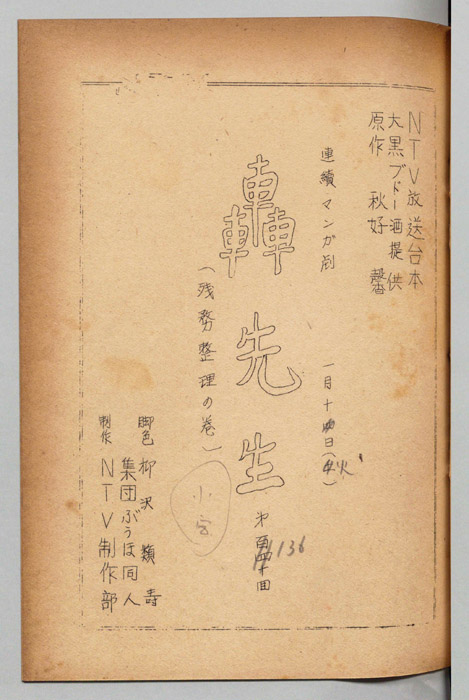 NTV放送台本
大黒ブドー酒提供
原作 秋好馨
連續マンガ劇
一月十四日(火)
轟先生
(残務整理の巻)
オ百四十回
136
脚色 柳沢類寿
集団ぶうほ同人
制作 NTV制作部